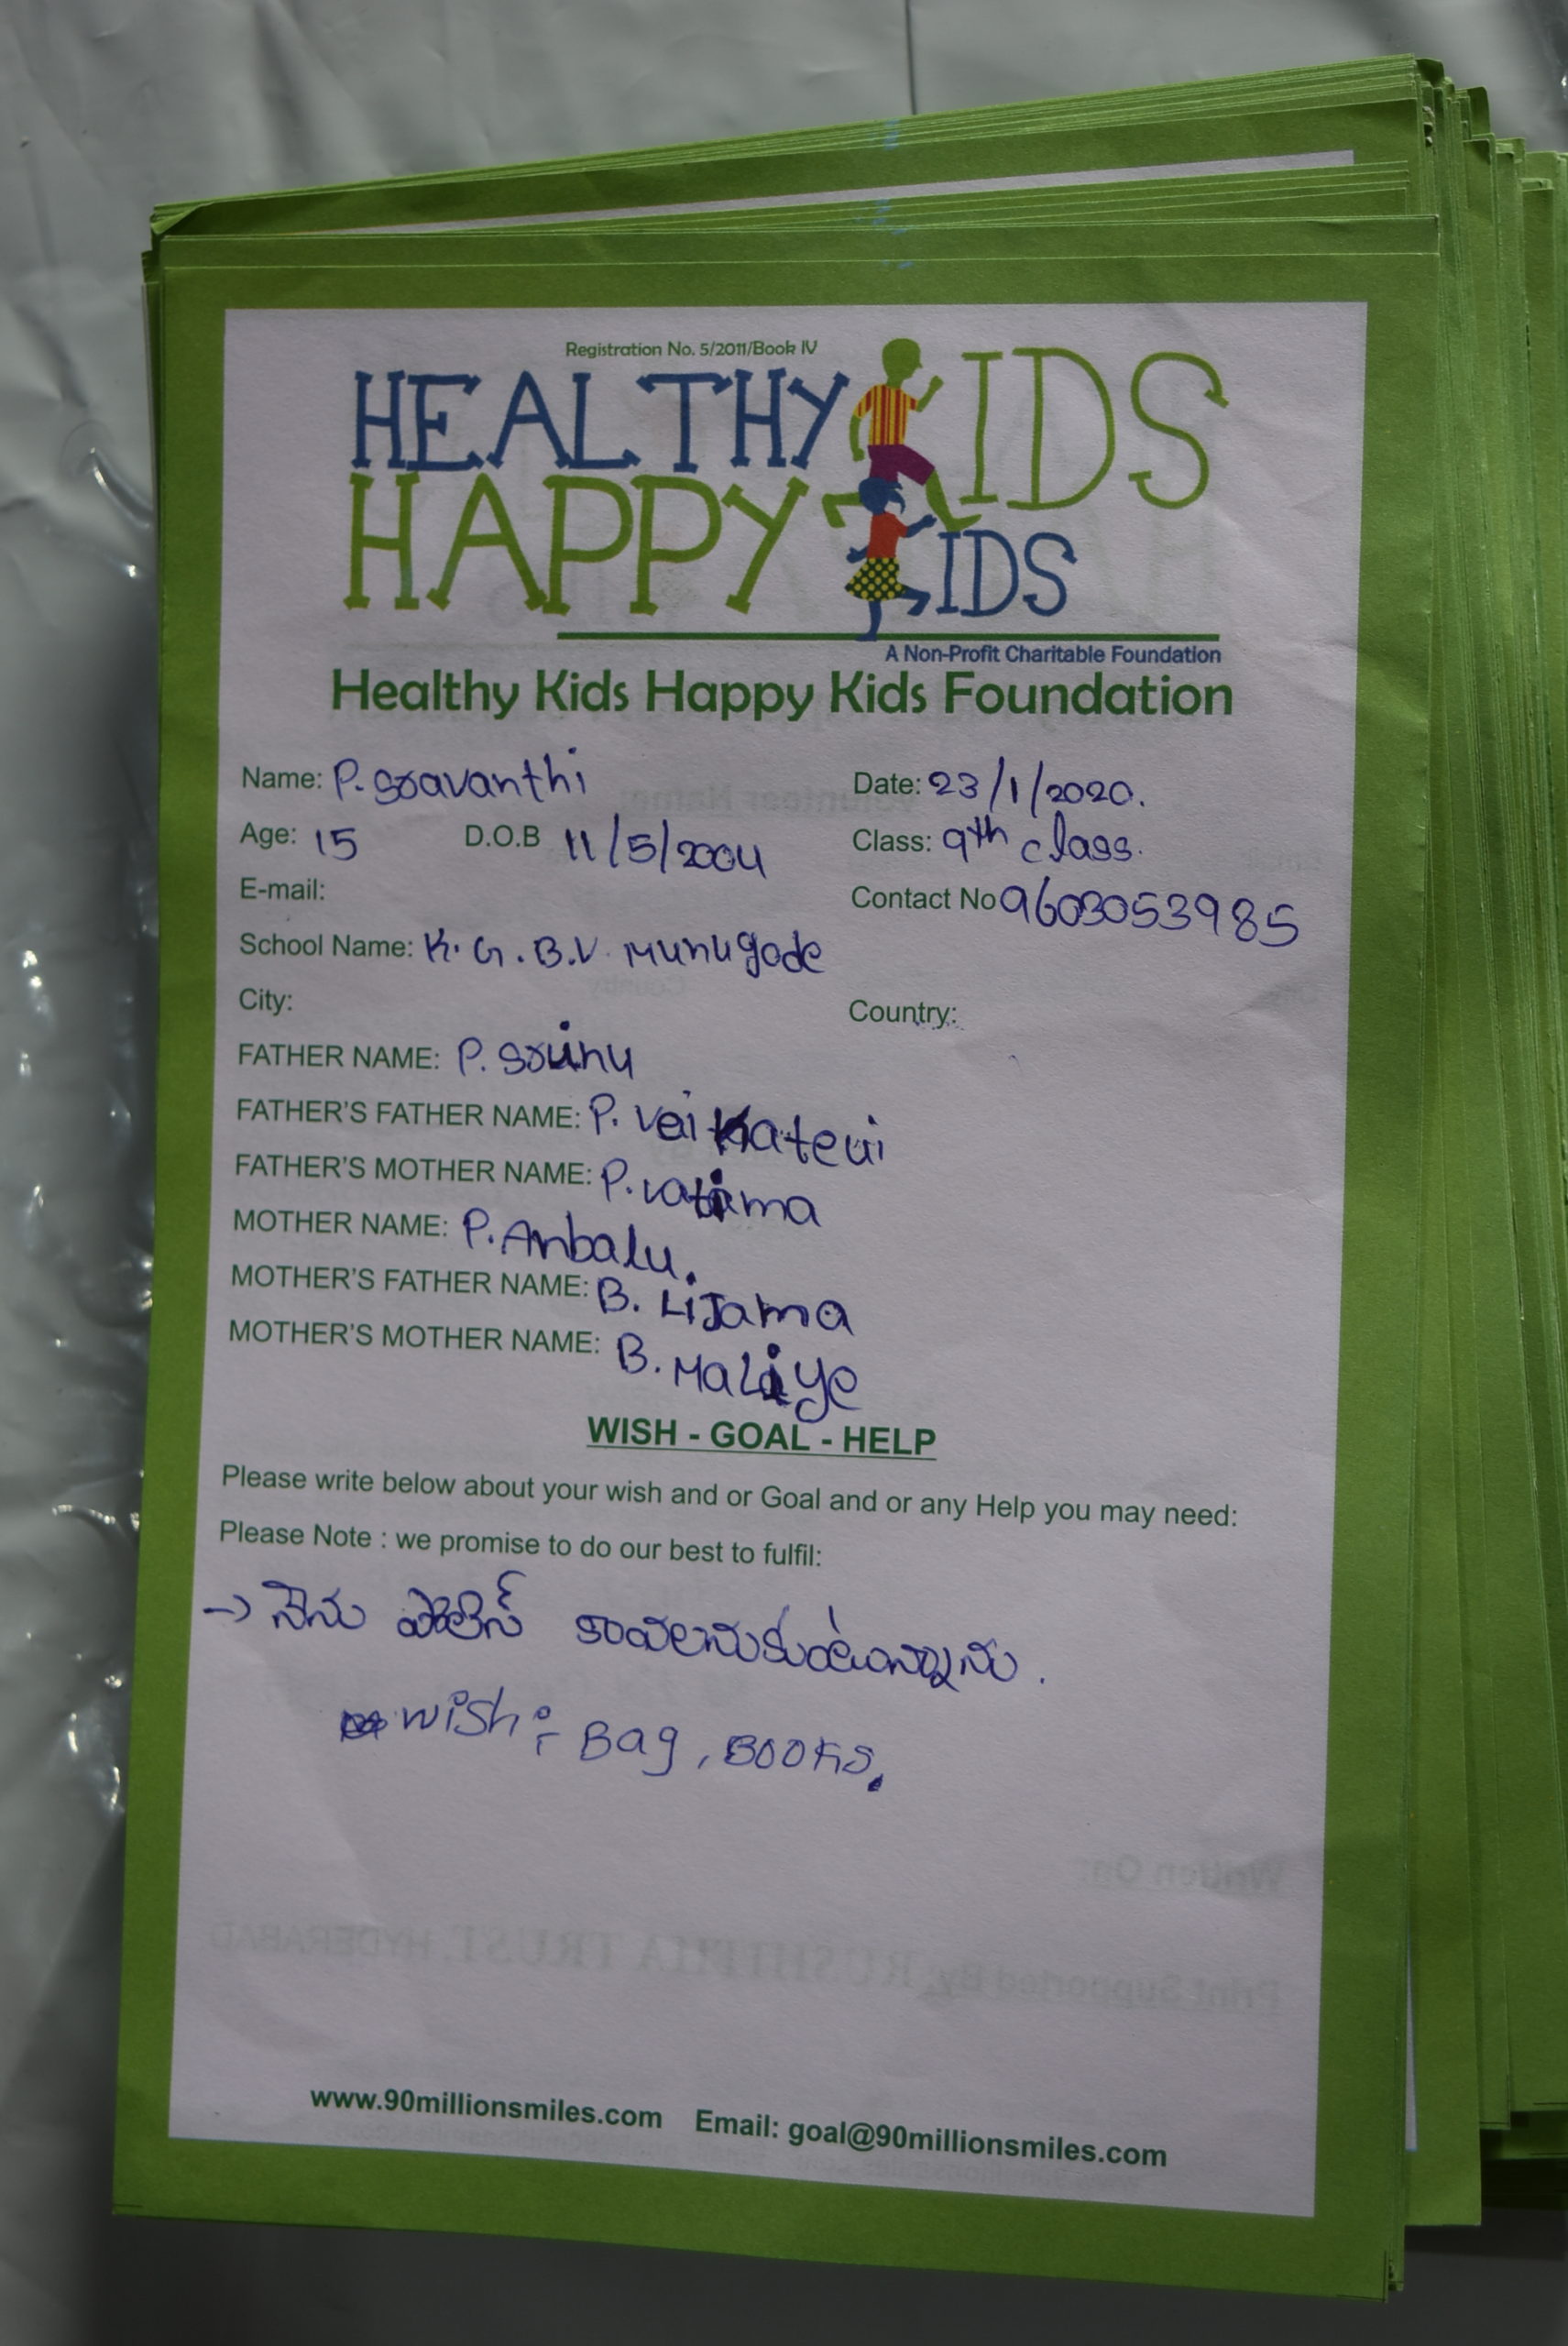 Registration No. 5/2011/Book IV
HEALTHY KIDS
HAPPY KIDS
A Non-Profit Charitable Foundation
Healthy Kids Happy Kids Foundation
Name: P. Sravanthi Date: 23/1/2020.
Age: 15 D.O.B 11/5/2004 Class: 9th class.
E-mail: Contact No 9603053985
School Name: K. G. B.V. Munugode
City: Country:
FATHER NAME: P. Srinu
FATHER'S FATHER NAME: P.
FATHER'S MOTHER NAME: P.
MOTHER NAME: P. Anbalu.
MOTHER'S FATHER NAME: B. LiJama
MOTHER'S MOTHER NAME: B. Maliye
WISH - GOAL - HELP
Please write below about your wish and or Goal and or any Help you may need:
Please Note : we promise to do our best to fulfil:
→ నేను పోలీస్ కావలనుకుంటున్నాను.
wish :- Bag, Books.
Written On:
Print Supported By, RUSHPITHA TRUST, HYDERABAD
www.90millionsmiles.com Email: goal@90millionsmiles.com